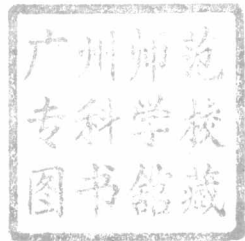 广州师范
专科学校
图书馆藏